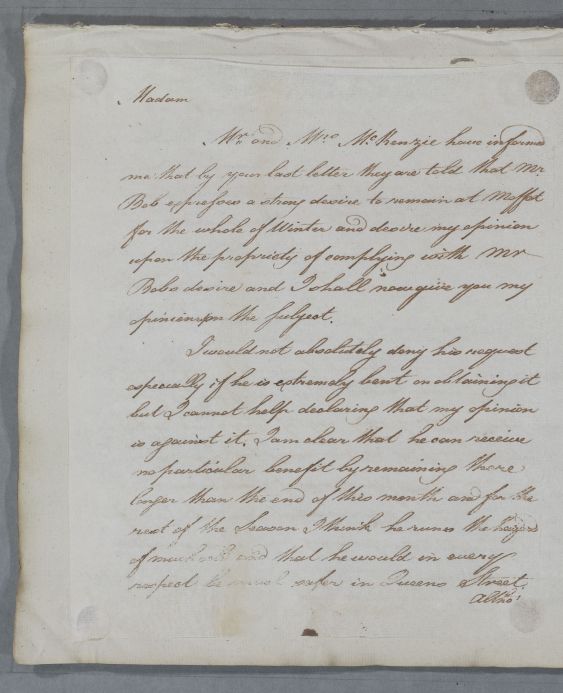 Madam
Mr. and Mrs. McKenzie have informed
me that by your last letter they are told that Mr
Bob expresses a strong desire to remain at Moffat
for the whole of Winter and desire my opinion
upon the propriety of complying with Mr
Bobs desire and I shall now give you my
opinion upon the subject.
I would not absolutely deny his request
especially if he is extremely bent on obtaining it
but I cannot help declaring that my opinion
is against it. I am clear that he can receive
no particular benefit by remaining there
longer than the end of this month and for the
rest of the Season I think he runs the hazard
of much cold and that he would in every
respect be much safer in Queens Street.
Altho'